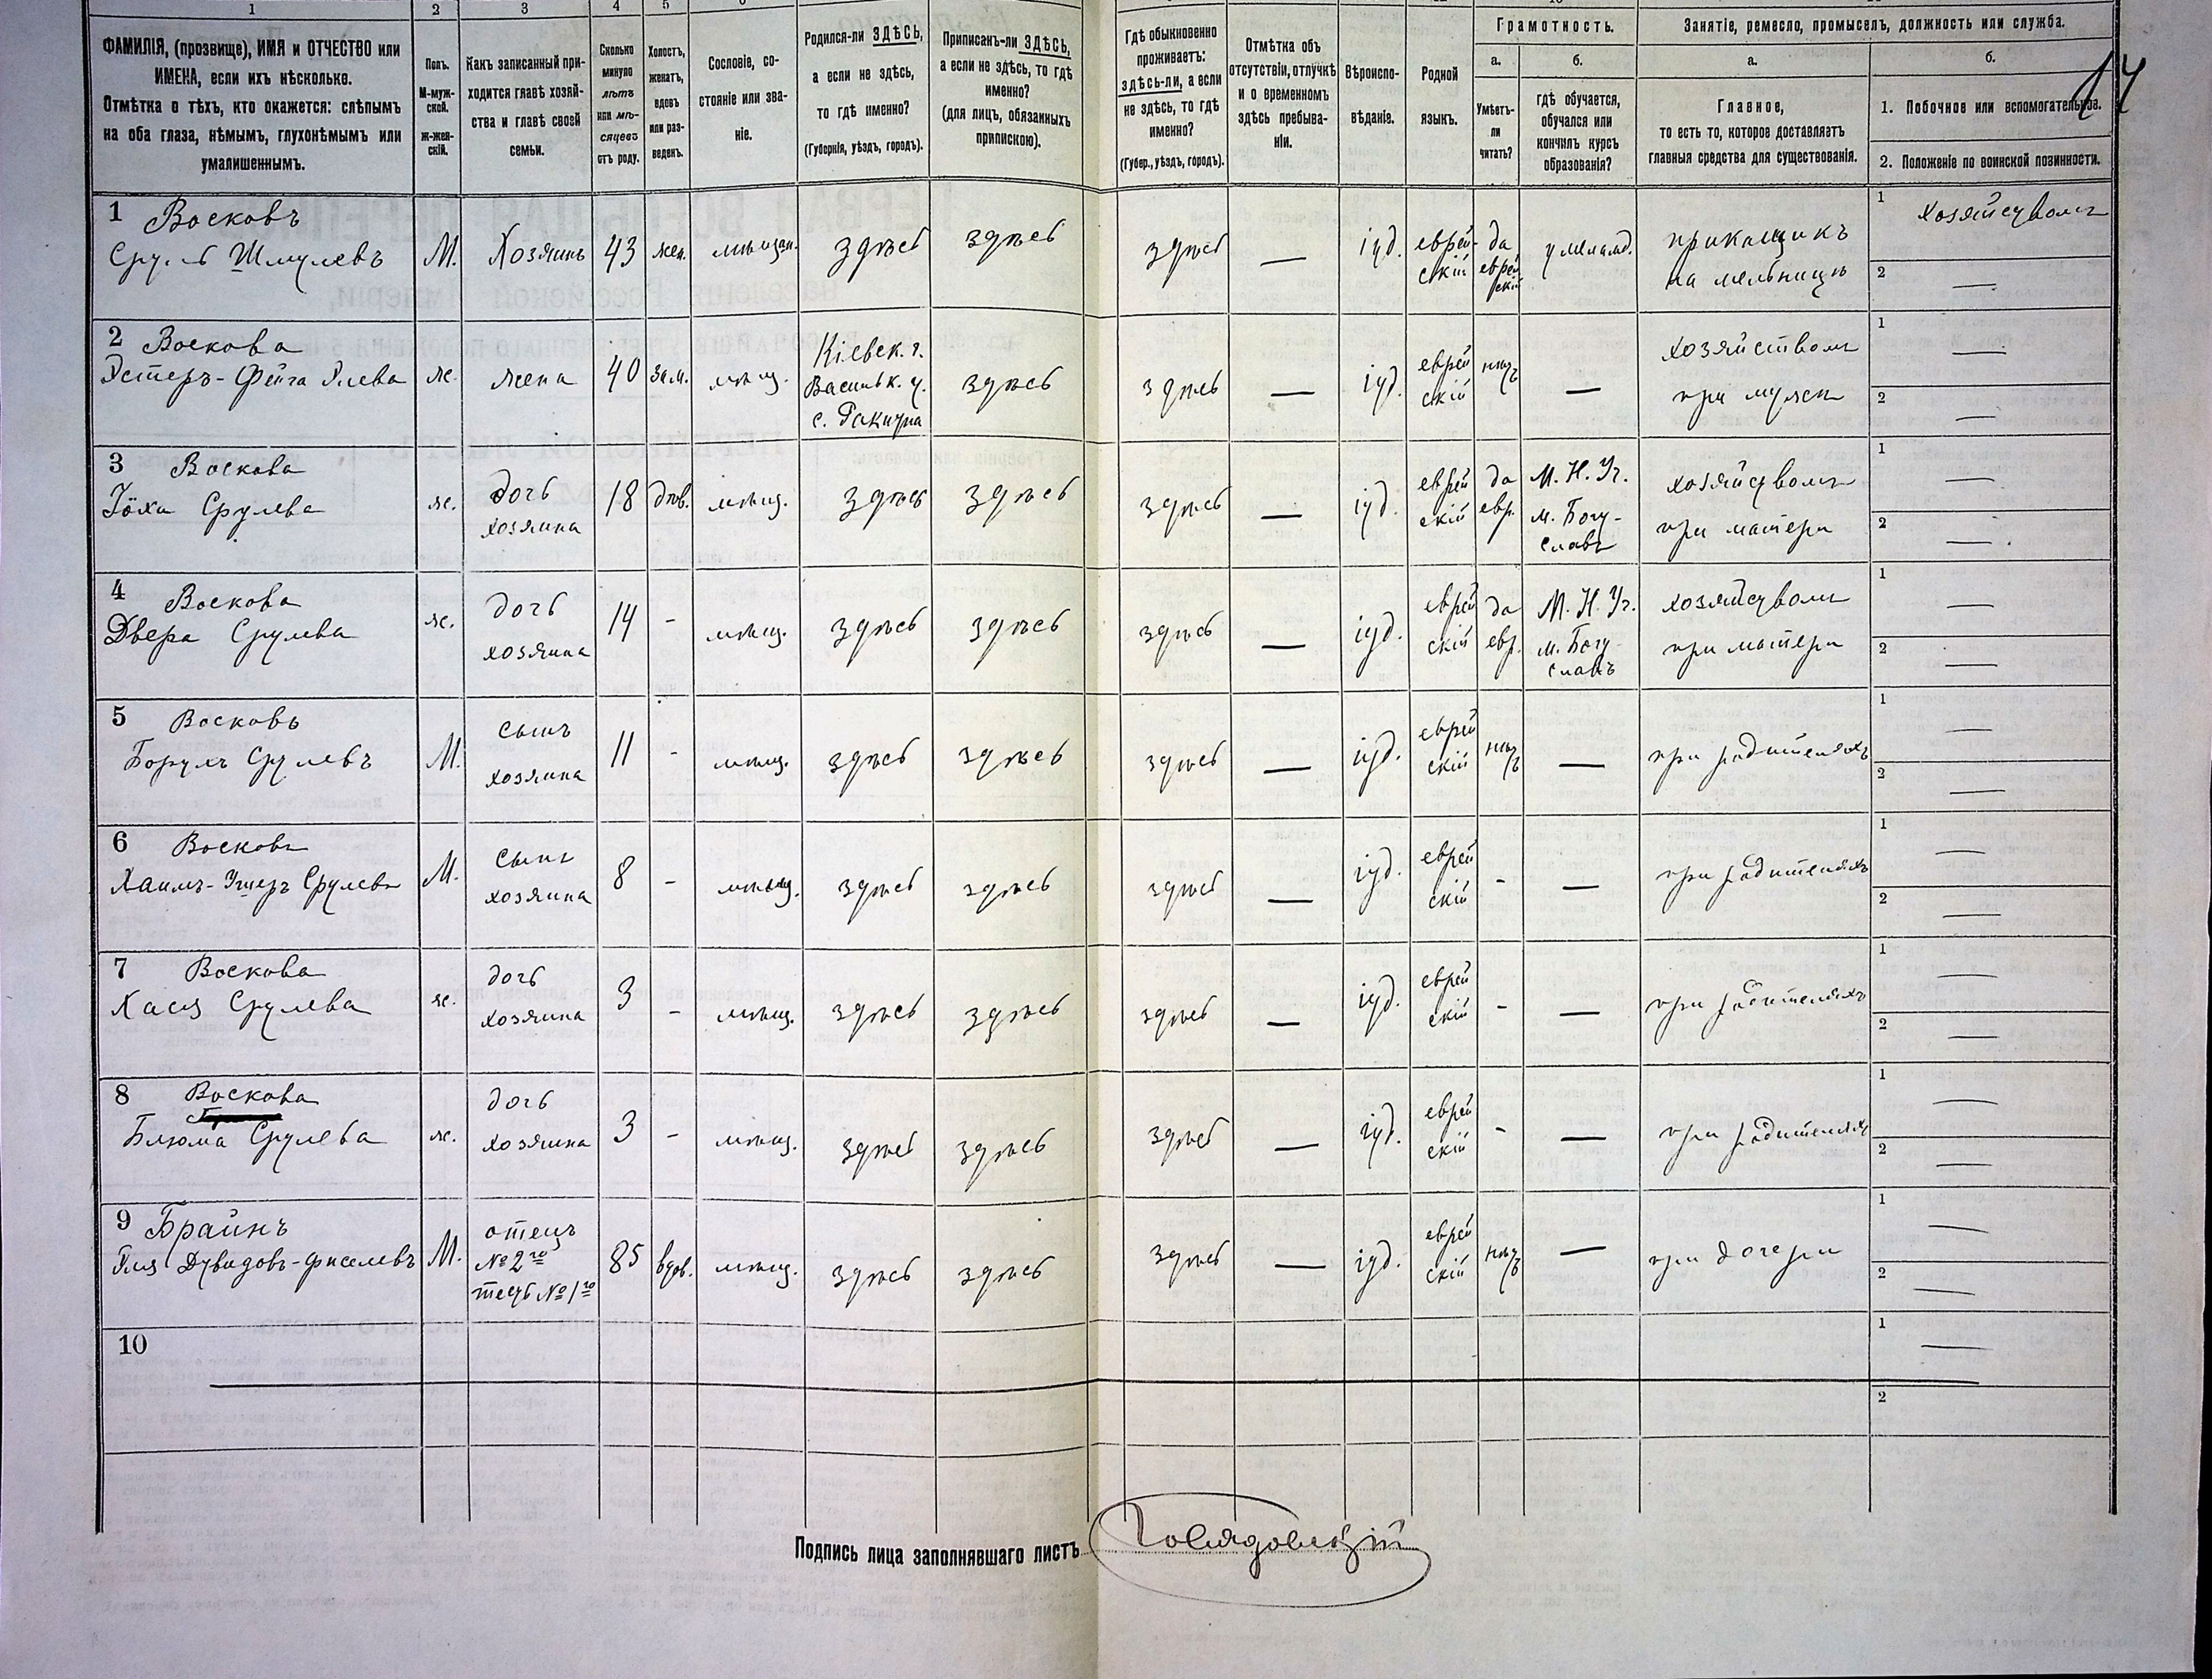 1 2 3 4 5
ФАМИЛІЯ, (прозвище), ИМЯ и ОТЧЕСТВО или
ИМЕНА, если ихъ нѣсколько.
Отмѣтка о тѣхъ, кто окажется: слѣпымъ
на оба глаза, нѣмымъ, глухонѣмымъ или
умалишеннымъ.
Полъ.
М-муж-
ской.
ж-жен-
скій.
Какъ записанный при-
ходится главѣ хозяй-
ства и главѣ своей
семьи.
Сколько
минуло
лѣтъ
или мѣ-
сяцевъ
отъ роду.
Холостъ,
женатъ,
вдовъ
или раз-
веденъ.
Сословіе, со-
стояніе или зва-
ніе.
Родился-ли ЗДѢСЬ,
а если не здѣсь,
то гдѣ именно?
(Губернія, уѣздъ, городъ).
Приписанъ-ли ЗДѢСЬ,
а если не здѣсь, то гдѣ
именно?
(для лицъ, обязанныхъ
припискою).
Гдѣ обыкновенно
проживаетъ:
здѣсь-ли, а если
не здѣсь, то гдѣ
именно?
(Губер., уѣздъ, городъ).
Отмѣтка объ
отсутствіи, отлучкѣ
и о временномъ
здѣсь пребыва-
ніи.
Вѣроиспо-
вѣданіе.
Родной
языкъ.
Грамотность.
а.
Умѣетъ-
ли
читать?
б.
гдѣ обучается,
обучался или
кончилъ курсъ
образованія?
Занятіе, ремесло, промыселъ, должность или служба.
а.
Главное,
то есть то, которое доставляетъ
главныя средства для существованія.
б.
14
1. Побочное или вспомогательное.
2. Положеніе по воинской повинности.
1 Восковъ
Сруль Шмулевъ
М.
Хозяинъ
43
жен.
мѣщан.
здѣсь
здѣсь
здѣсь
—
іуд.
еврей-
скій
да
еврей
скій
у меламд.
прикащикъ
на мельницѣ
1 хозяйствомъ
2 —
2 Воскова
Эстеръ-Фейга Элева
ж.
жена
40
зам.
мѣщ.
Кіевск. г.
Васильк. у.
с. Ракитна
здѣсь
здѣсь
—
іуд.
еврей
скій
нѣтъ
—
хозяйствомъ
при мужѣ
1 —
2 —
3 Воскова
Ріоха Срулева
ж.
дочь
хозяина
18
дѣв.
мѣщ.
здѣсь
здѣсь
здѣсь
—
іуд.
еврей
скій
да
евр.
М. Н. Уч.
м. Богу-
славъ
хозяйствомъ
при матери
1 —
2 —
4 Воскова
Двера Срулева
ж.
дочь
хозяина
14
-
мѣщ.
здѣсь
здѣсь
здѣсь
—
іуд.
еврей
скій
да
евр.
М. Н. Уч.
м. Богу-
славъ
хозяйствомъ
при матери
1 —
2 —
5 Восковъ
Борухъ Срулевъ
М.
сынъ
хозяина
11
-
мѣщ.
здѣсь
здѣсь
здѣсь
—
іуд.
еврей
скій
нѣтъ
—
при родителяхъ
1 —
2 —
6 Восковъ
Хаимъ-Ушеръ Срулевъ
М.
сынъ
хозяина
8
-
мѣщ.
здѣсь
здѣсь
здѣсь
—
іуд.
еврей
скій
-
—
при родителяхъ
1 —
2 —
7 Воскова
Хася Срулева
ж.
дочь
хозяина
3
-
мѣщ.
здѣсь
здѣсь
здѣсь
—
іуд.
еврей
скій
-
—
при родителяхъ
1 —
2 —
8 Воскова
Блюма Срулева
ж.
дочь
хозяина
3
-
мѣщ.
здѣсь
здѣсь
здѣсь
—
іуд.
еврей
скій
-
—
при родителяхъ
1 —
2 —
9 Брайнъ
Эля Дувидовъ-Фиселевъ
М.
отецъ
№ 2го
тесть № 1го
85
вдов.
мѣщ.
здѣсь
здѣсь
здѣсь
—
іуд.
еврей
скій
нѣтъ
—
при дочери
1 —
2 —
10
1 —
2
Подпись лица заполнявшаго листъ